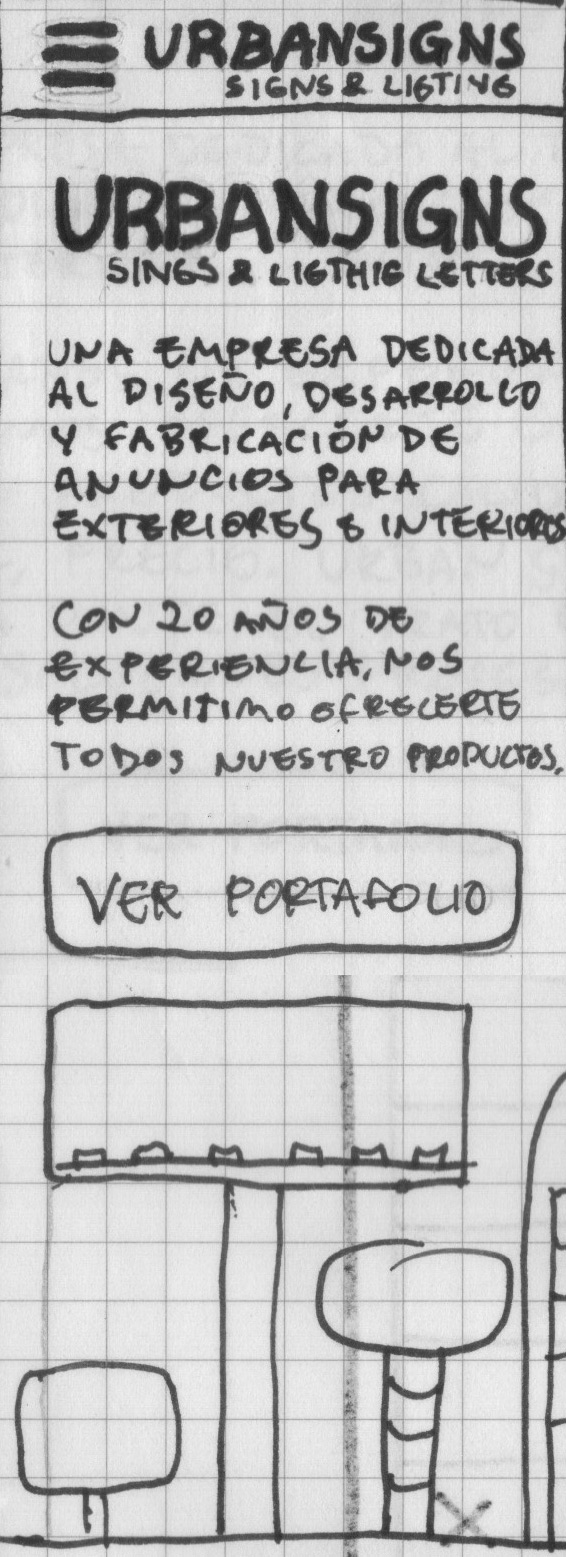 URBANSIGNS
SIGNS & LIGTING
URBANSIGNS
SINGS & LIGTHIG LETTERS
UNA EMPRESA DEDICADA
AL DISEÑO, DESARROLLO
Y FABRICACIÓN DE
ANUNCIOS PARA
EXTERIORES E INTERIORES
CON 20 AÑOS DE
EXPERIENCIA, NOS
PERMITIMO OFRECERTE
TODOS NUESTRO PRODUCTOS.
VER PORTAFOLIO